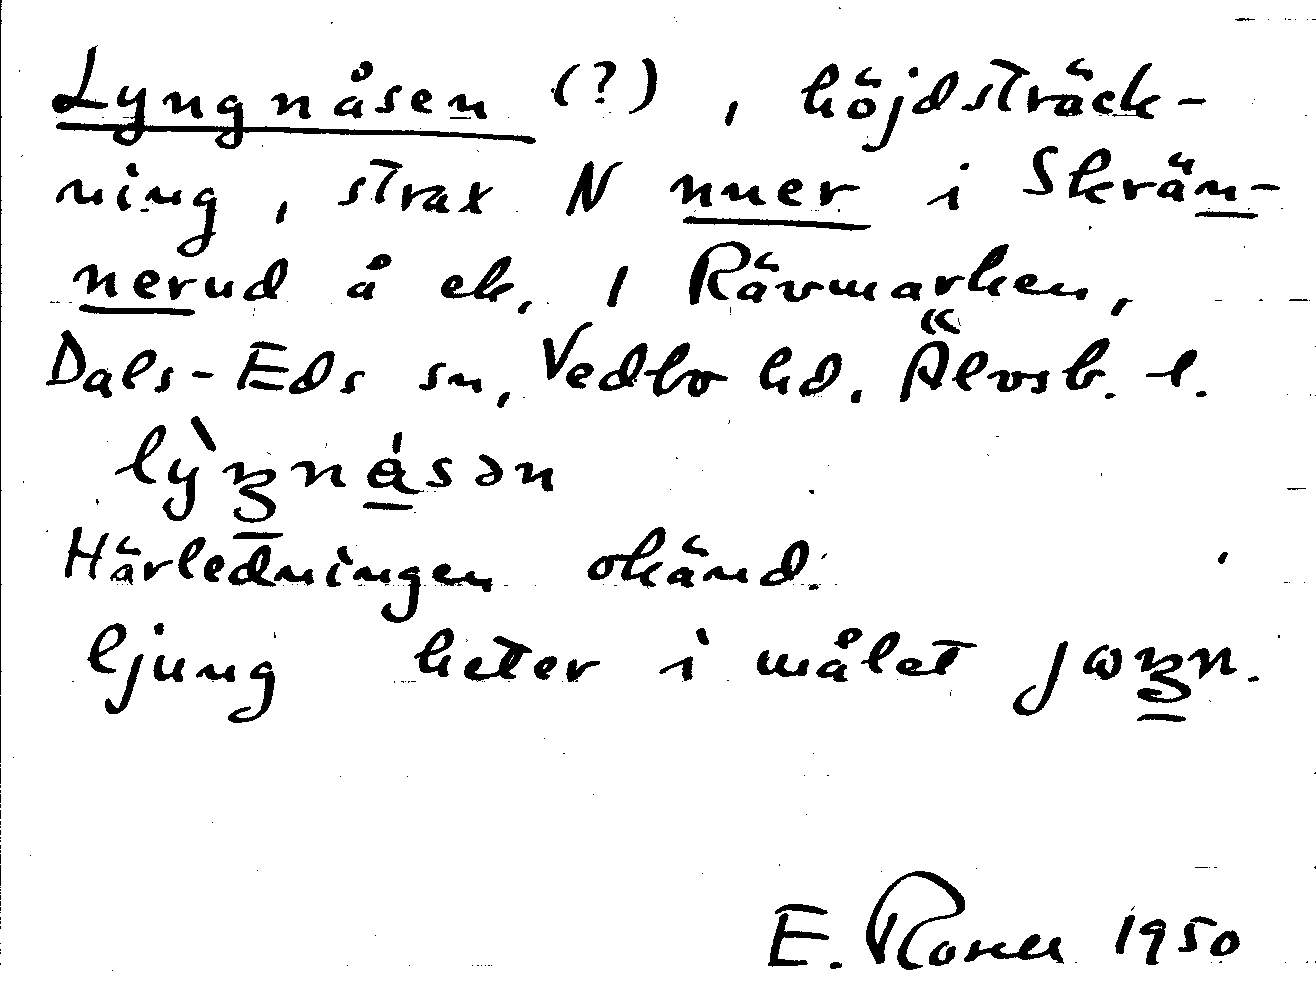 Lyngnåsen (?), höjdsträck-
ning, strax N nner i Skrän-
nerud å ek. 1 Rävmarken,
Dals-Eds sn, Vedbo hd. Älvsb. l.
lỳꬼnåsən
Härledningen okänd.
ljung heter i målet jωꬼn.
E. Rosell 1950